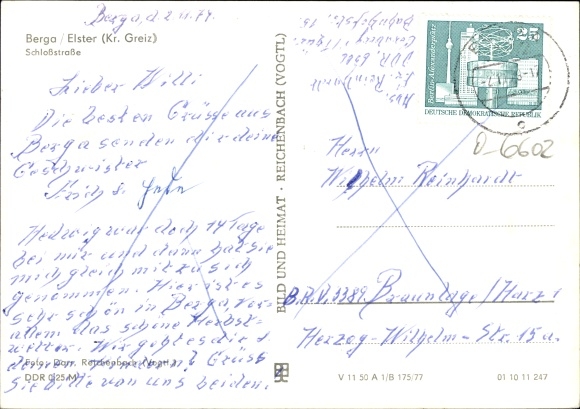 Berga, d. 2.11.77.
Berga / Elster (Kr. Greiz)
Schloßstraße
Lieber Willi
Die besten Grüsse aus
Berga senden dir deine
Geschwister
Erich &
Hedwig war doch 14 Tage
bei mir und dann hat sie
mich gleich mit zu sich
genommen. Hier ist es
sehr schön in Berga, vor
allem das schöne Herbst-
wetter. Wie geht es dir,
Foto: Darr, Reichenbach (Vogtl.)
Grüss
DDR 0,25 M
Sie bitte von uns beiden.
BILD UND HEIMAT · REICHENBACH (VOGTL)
Abs.
Reinhardt
DDR. 6602
Bahnhofstr. 15
Berlin-Alexanderplatz
25
DEUTSCHE DEMOKRATISCHE REPUBLIK
D-6602
Herrn
Wilhelm Reinhardt
B.R.D. 3389. Braunlage/Harz 1
Herzog-Wilhelm-Str. 15a.
V 11 50 A 1/B 175/77
01 10 11 247